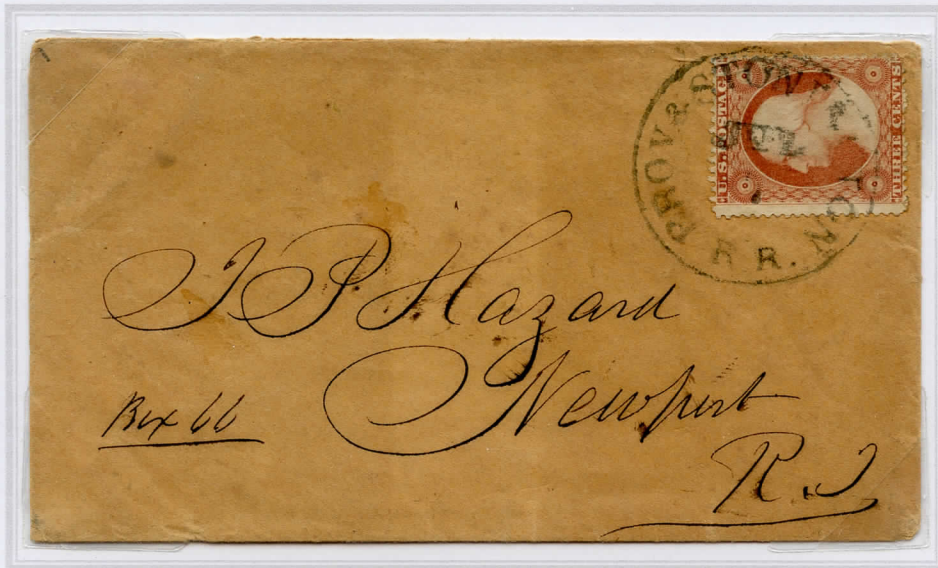 PROV & STONINGTON R.R.
U.S. POSTAGE
THREE CENTS
J P Hazard
Newport
Box 66
R.I